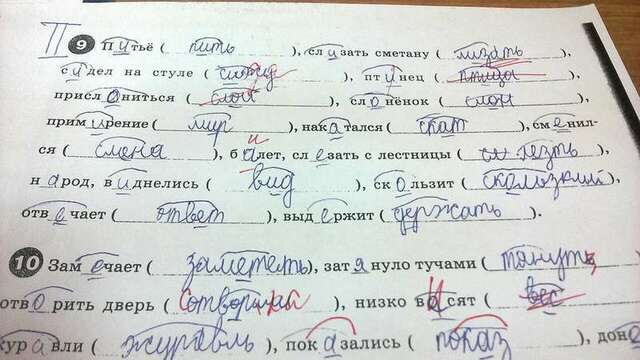 9 Питьё ( пить ), слизать сметану ( лизать ),
сидел на стуле ( ), птинец ( птица ),
прислониться ( слон ), слонёнок ( слон ),
примирение ( мир ), накатался ( скат ), сменил-
ся ( смена ), балет, слезать с лестницы ( слезть ),
народ, виднелись ( вид ), скользит ( скользкий ),
отвечает ( ответ ), выдержит ( держать ).
10 Замечает ( замететь ), затянуло тучами ( тянуть ),
отворить дверь ( ), низко в сят ( вес ),
журавли ( журавль ), показались ( показ ),